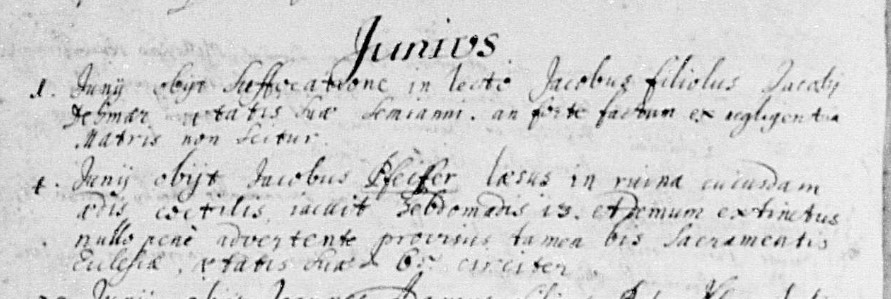 Junius
1. Junij obijt suffocatione in lecto Jacobus filiolus Jacobi
ætatis suæ semianni. an forte factum ex negligentia
Matris non scitur.
4. Junij obijt Jacobus Pfeiffer læsus in ruina cuiusdam
ædis coctilis, iacuit hebdomadis 13. et demum extinctus
nullo penè advertente provisus tamen bis Sacramentis
Ecclesiæ, ætatis suæ circiter
Junij obijt